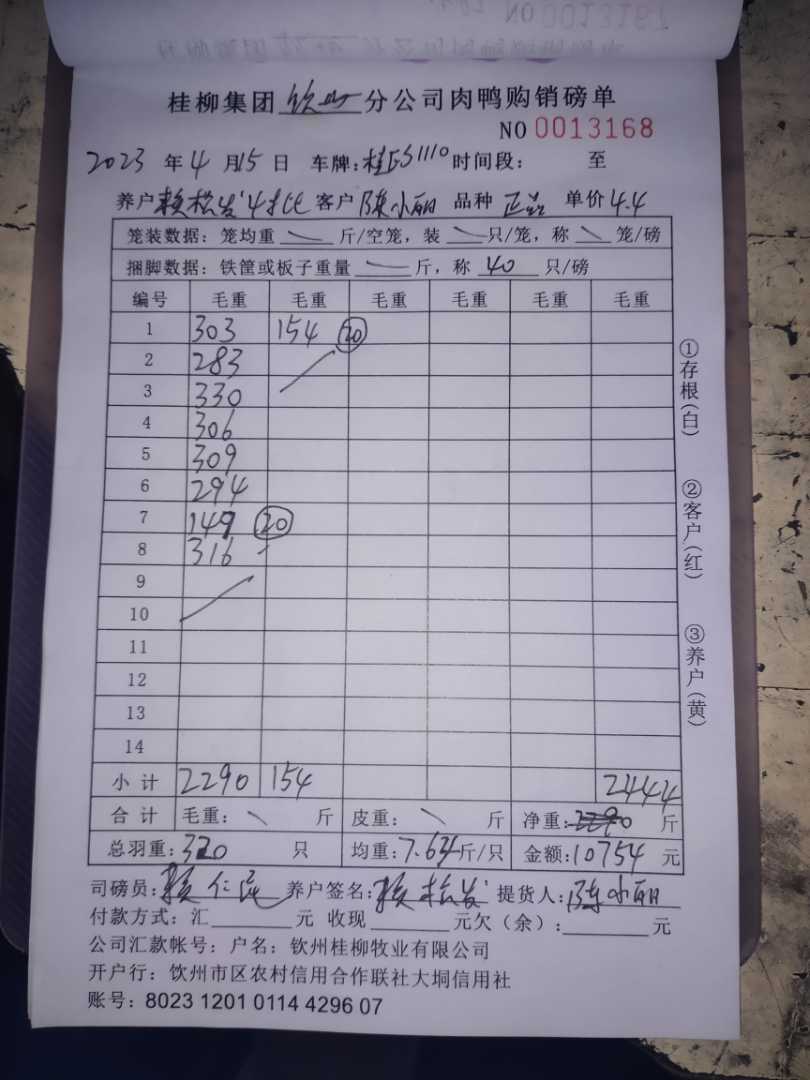 桂柳集团 钦州 分公司肉鸭购销磅单
NO 0013168
2023 年 4 月 15 日 车牌: 1110 时间段: 至
养户 赖松发 4批 客户 陈小丽 品种 正品 单价 4.4
笼装数据: 笼均重 斤/空笼, 装 只/笼, 称 笼/磅
捆脚数据: 铁筐或板子重量 斤, 称 40 只/磅
编号 毛重 毛重 毛重 毛重 毛重 毛重
1 303 154 20
2 283
3 330
4 306
5 309
6 294
7 149 20
8 316
9
10
11
12
13
14
小计 2290 154 2444
合计 毛重: 斤 皮重: 斤 净重: 2290 斤
总羽重: 320 只 均重: 7.64 斤/只 金额: 10754 元
司磅员: 赖仁 养户签名: 赖松发 提货人: 陈小丽
付款方式: 汇 元 收现 元欠(余): 元
公司汇款帐号: 户名: 钦州桂柳牧业有限公司
开户行: 钦州市区农村信用合作联社大垌信用社
账号: 8023 1201 0114 4296 07
①存根(白)
②客户(红)
③养户(黄)